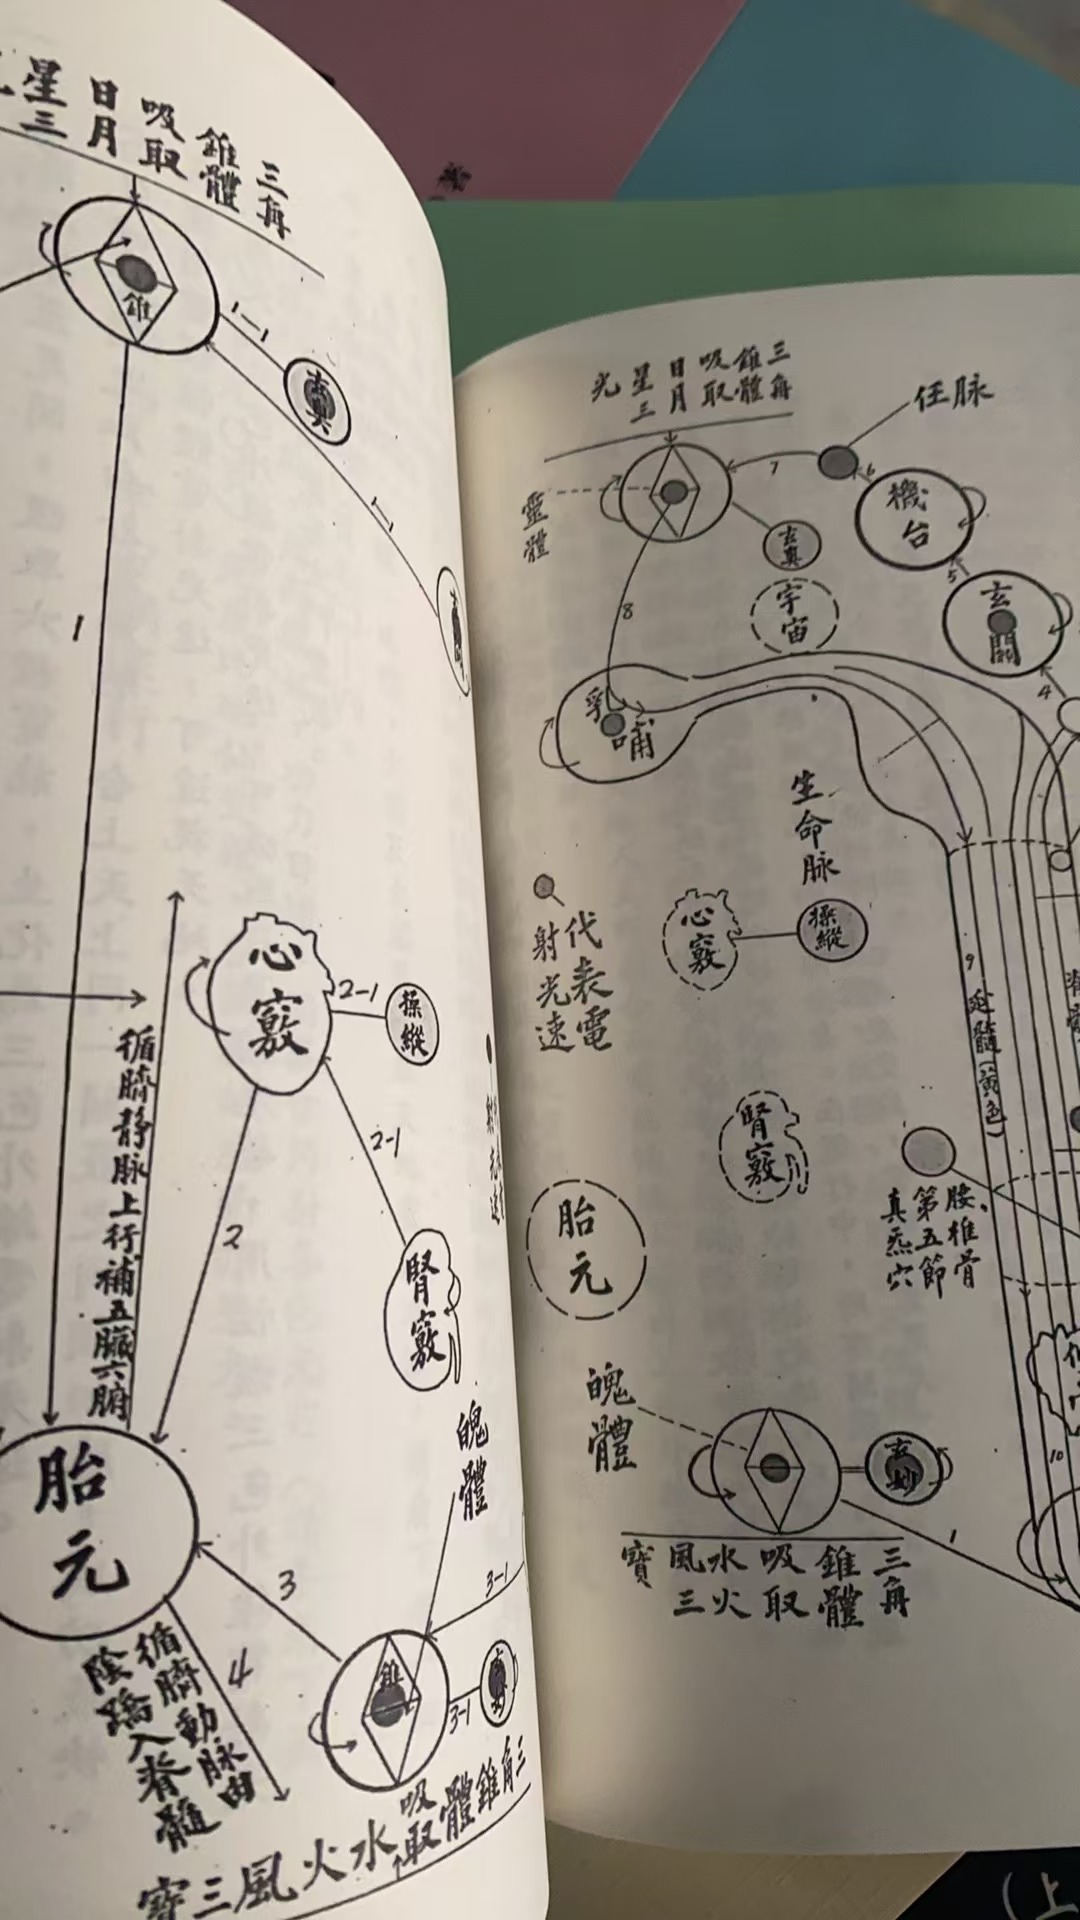 三角
錐體
吸取
日月
星三
錐
1-1
真
1-1
1
心竅
2-1
操縱
2-1
腎竅
2
循臍靜脈上行補五臟六腑
胎元
3
魄體
3-1
錐
3-1
4
循臍動脈由
陰蹻入脊髓
三角錐體吸取水火風三寶
三角
錐體
吸取
日月
星三
光
任脉
7
6
機台
靈體
玄真
5
宇宙
玄關
8
4
乳哺
生命脉
心竅
操縱
代表電
射光速
9
延髓(黃色)
腎竅
腰椎骨
第五節
真炁穴
胎元
魄體
玄妙
10
1
三角
錐體
吸取
水火
風三
寶
(上